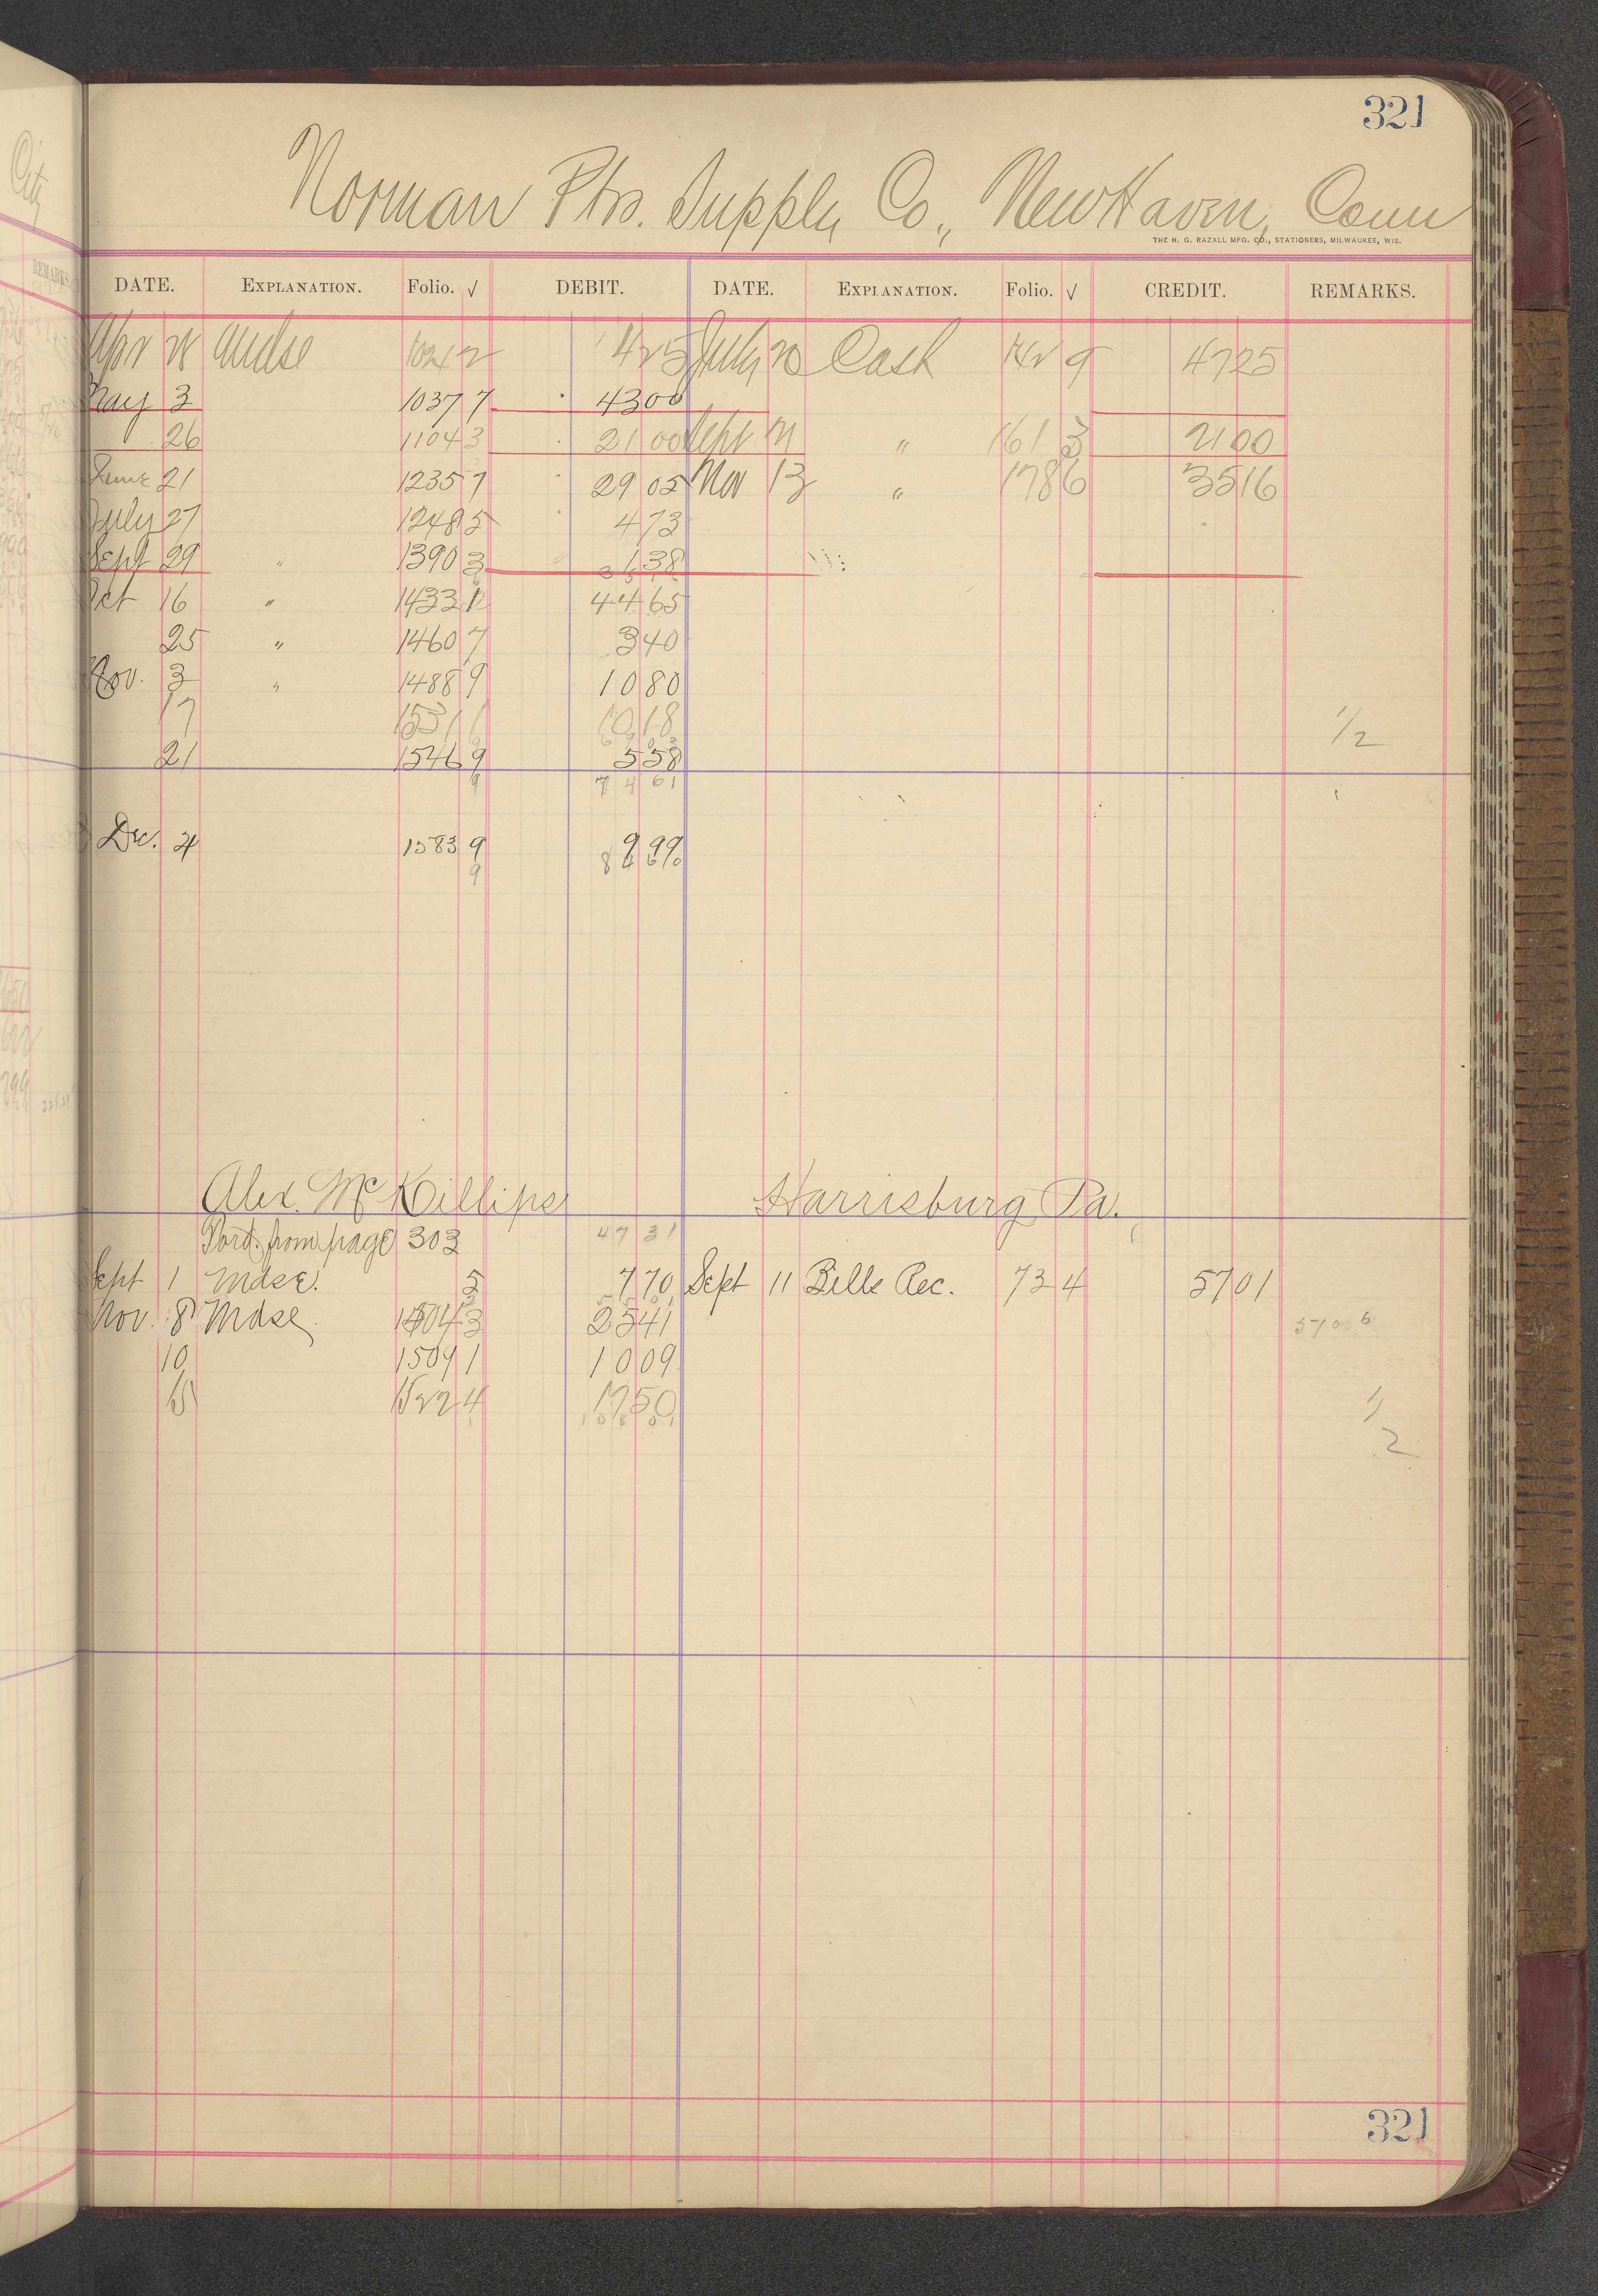 321
Norman Pts. Supply Co., New Haven, Conn
THE H. G. RAZALL MFG. CO., STATIONERS, MILWAUKEE, WIS.
DATE. EXPLANATION. Folio. √ DEBIT. DATE. EXPLANATION. Folio. √ CREDIT. REMARKS.
Apr 28 Mdse 1024 2 4 25 July 20 Cash 142 9 47 25
May 3 1037 7 43 00
26 1104 3 21 00 Sept 21 " 161 3 21 00
June 21 1235 7 29 05 Nov 13 " 178 6 35 16
July 27 1248 5 4 73
Sept 29 " 1390 3 1 38
Oct 16 " 1433 44 65
25 " 1460 7 3 40
Nov. 3 " 1488 9 10 80
17 1531 1 10 18 1/2
21 1546 9 5 58
9 74 61
Dec. 4 1583 9 9 99
9 84 60
Alex. McKillips Harrisburg Pa.
Ford. from page 303 47 31
Sept 1 Mdse. 5 7 70 Sept 11 Bills Rec. 73 4 57 01
Nov. 8 Mdse. 1504 3 25 41
10 1509 1 10 09
15 1522 4 17 50 1/
2
321